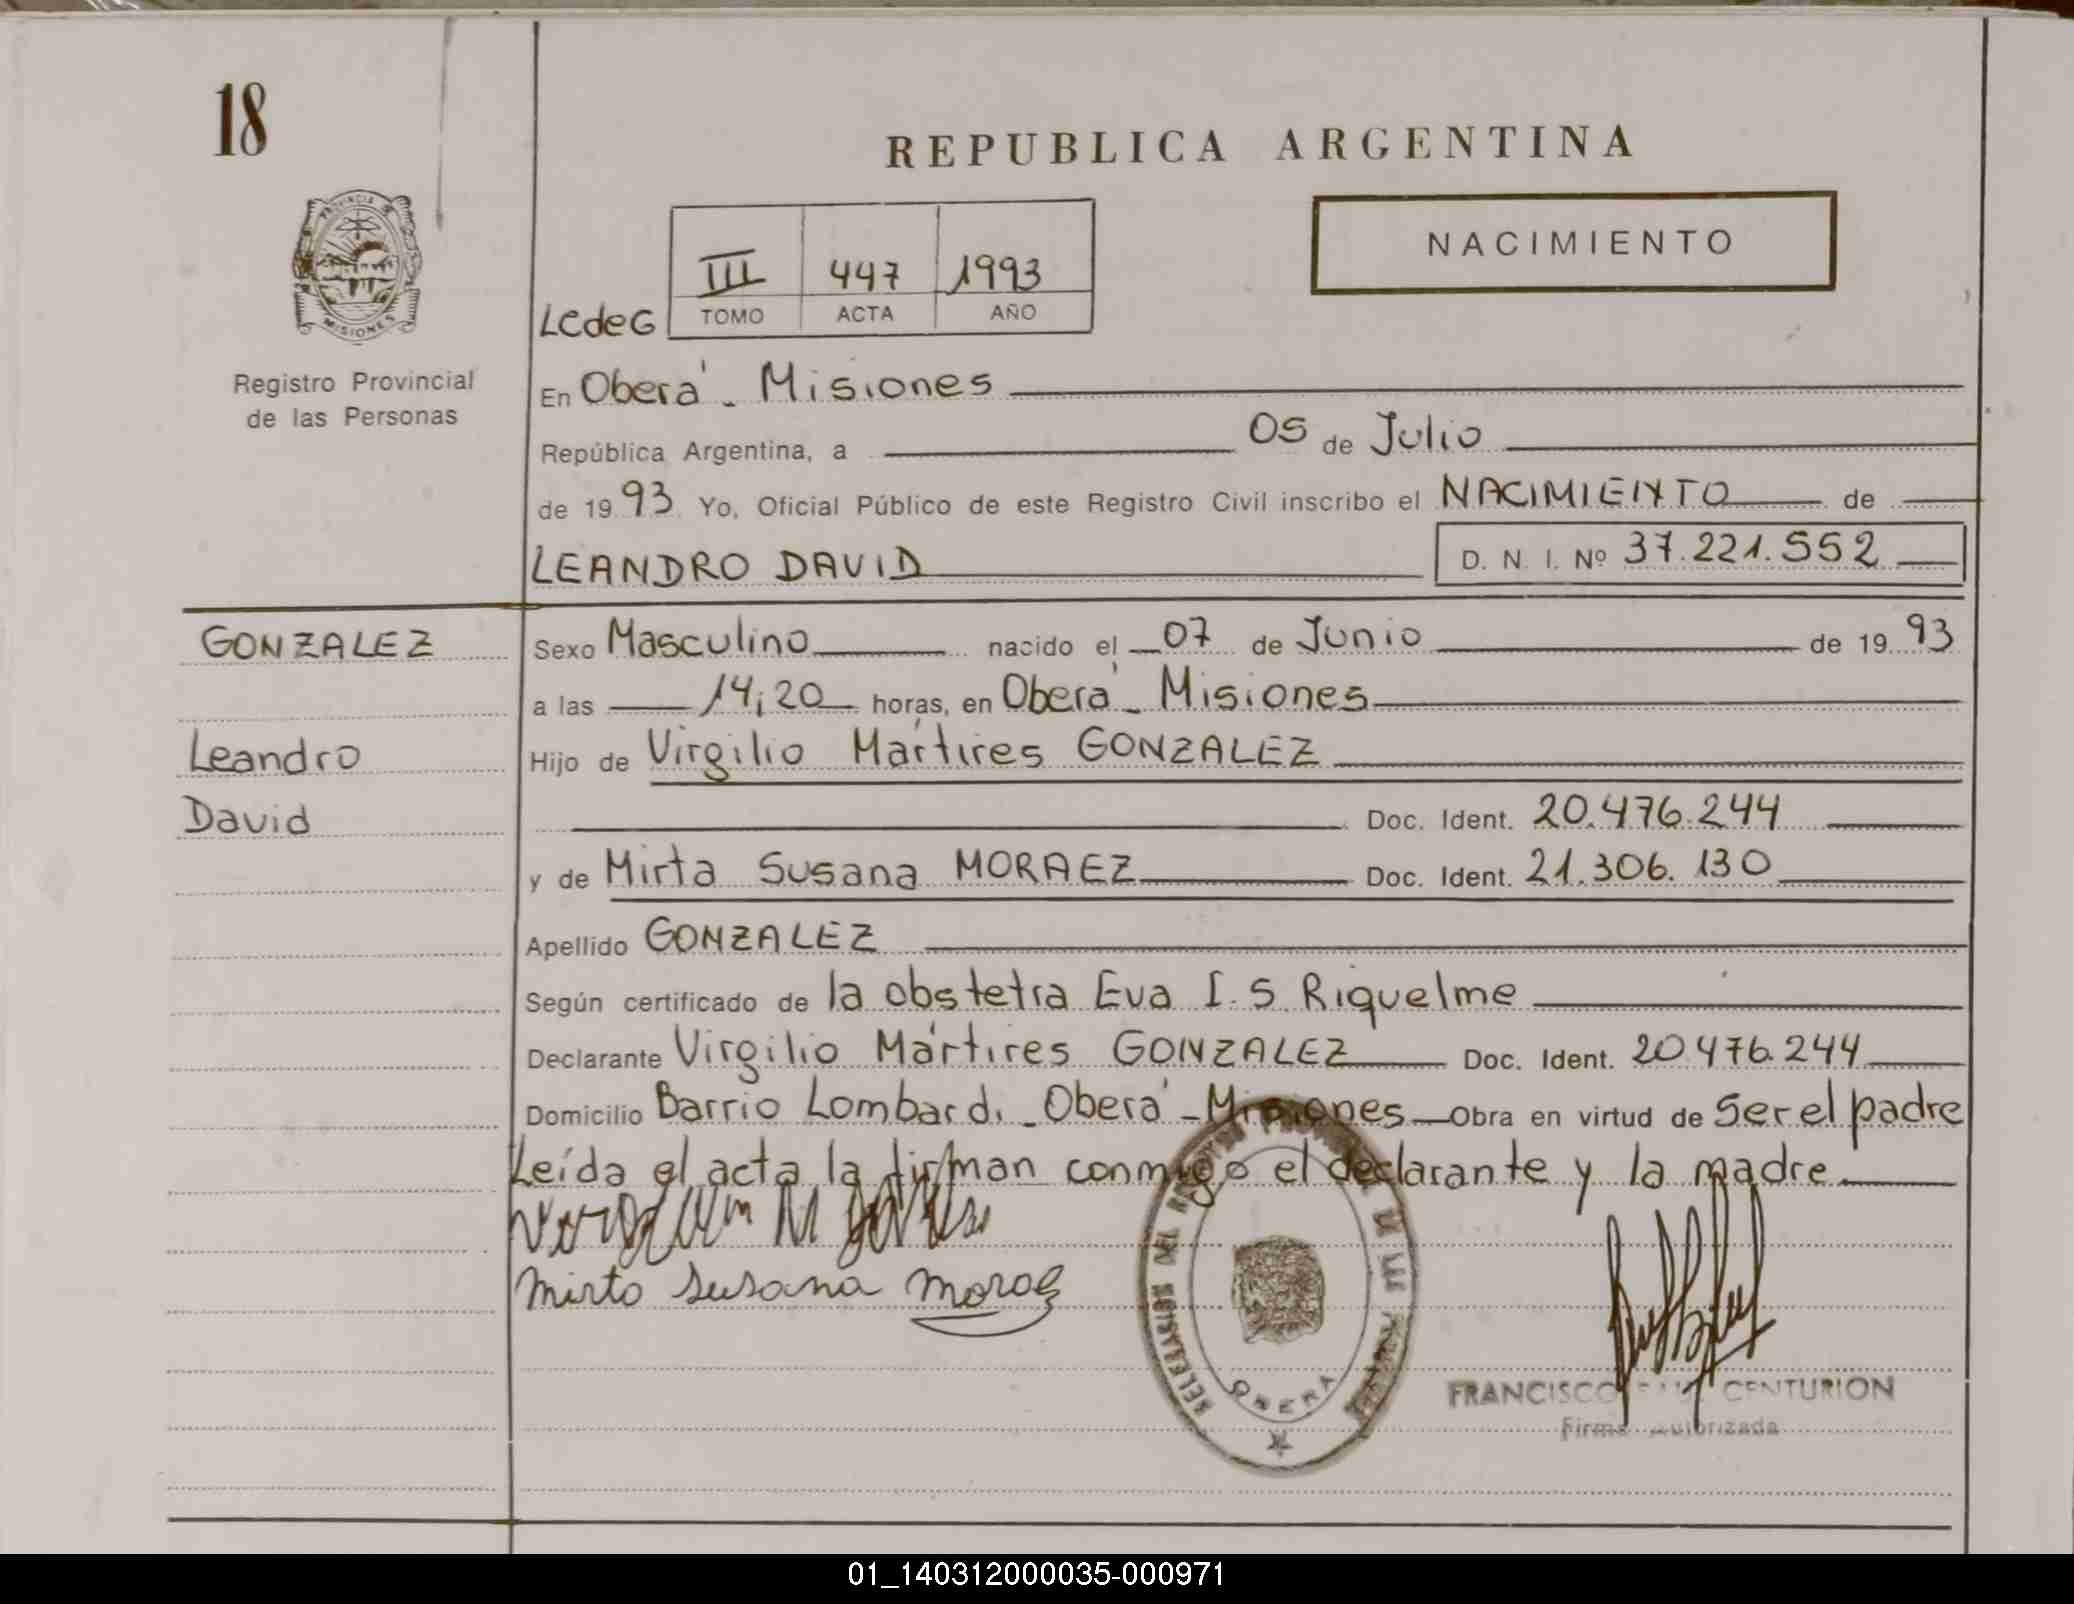 18
REPUBLICA ARGENTINA
PROVINCIA DE
MISIONES
NACIMIENTO
III 447 1993
LCdeG TOMO ACTA AÑO
Registro Provincial
de las Personas
En Oberá - Misiones
República Argentina, a 05 de Julio
de 1993 Yo, Oficial Público de este Registro Civil inscribo el NACIMIENTO de
LEANDRO DAVID D. N. I. Nº 37.221.552
GONZALEZ
Leandro
David
Sexo Masculino nacido el 07 de Junio de 1993
a las 14,20 horas, en Oberá - Misiones
Hijo de Virgilio Mártires GONZALEZ
Doc. Ident. 20.476.244
y de Mirta Susana MORAEZ Doc. Ident. 21.306.130
Apellido GONZALEZ
Según certificado de la obstetra Eva I. S. Riquelme
Declarante Virgilio Mártires GONZALEZ Doc. Ident. 20.476.244
Domicilio Barrio Lombardi - Oberá - Misiones - Obra en virtud de Ser el padre
Leída el acta la firman conmigo el declarante y la madre
Mirta Susana Moraez
DELEGACION DEL
OBERA
FRANCISCO CENTURION
Firma Autorizada
01_140312000035-000971